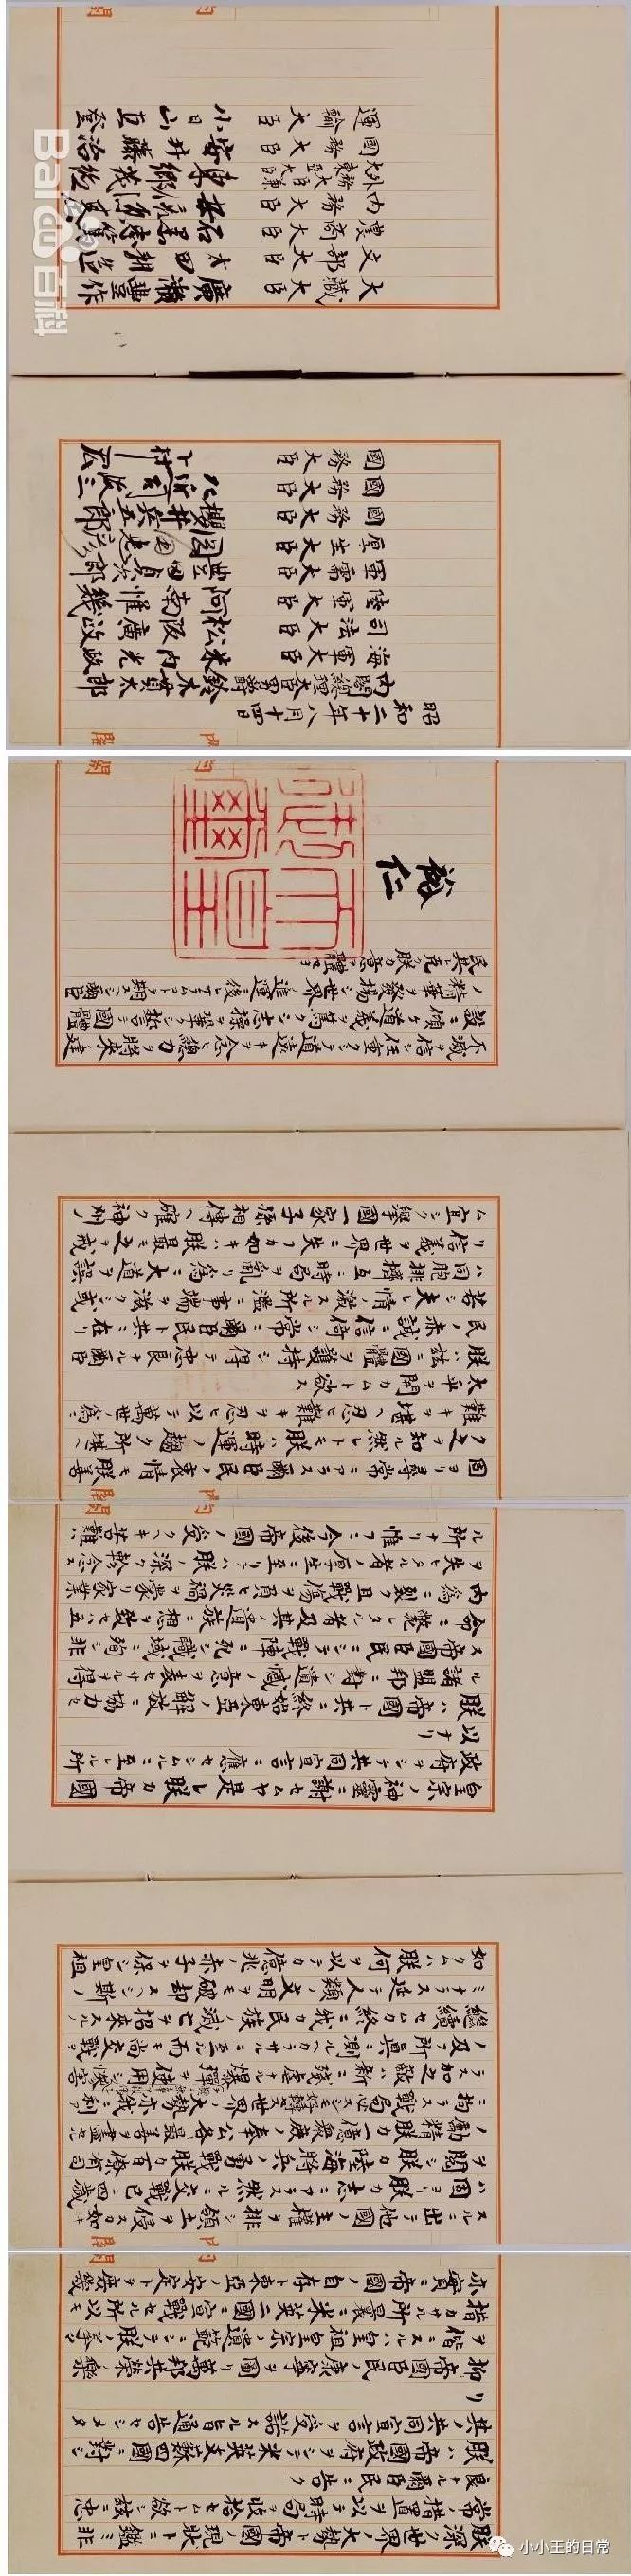 朕深ク世界ノ大勢ト帝國ノ現状トニ鑑ミ非
常ノ措置ヲ以テ時局ヲ收拾セムト欲シ茲ニ忠
良ナル爾臣民ニ告ク
朕ハ帝國政府ヲシテ米英支蘇四國ニ對シ
其ノ共同宣言ヲ受諾スル旨通告セシメタ
リ
抑帝國臣民ノ康寧ヲ圖リ萬邦共榮ノ樂
ヲ偕ニスルハ皇祖皇宗ノ遺範ニシテ朕ノ拳々
措カサル所曩ニ米英二國ニ宣戰セル所以モ
亦實ニ帝國ノ自存ト東亞ノ安定トヲ庶幾
内閣
スルニ出テ他國ノ主權ヲ排シ領土ヲ侵スカ如キ
ハ固ヨリ朕カ志ニアラス然ルニ交戰已ニ四歳
ヲ閲シ朕カ陸海將兵ノ勇戰朕カ百僚有司
ノ勵精朕カ一億衆庶ノ奉公各最善ヲ盡セル
ニ拘ラス戰局必スシモ好轉セス世界ノ大勢亦我ニ利ア
ラス加之敵ハ新ニ殘虐ナル爆彈ヲ使用シテ慘害
ノ及フ所眞ニ測ルヘカラサルニ至ル而モ尚交戰ヲ
繼續セムカ終ニ我カ民族ノ滅亡ヲ招來スルノ
ミナラス延テ人類ノ文明ヲモ破却スヘシ斯ノ
如クムハ朕何ヲ以テカ億兆ノ赤子ヲ保シ皇祖
皇宗ノ神靈ニ謝セムヤ是レ朕カ帝國
政府ヲシテ共同宣言ニ應セシムルニ至レル所
以ナリ
朕ハ帝國ト共ニ終始東亞ノ解放ニ協力セ
ル諸盟邦ニ對シ遺憾ノ意ヲ表セサルヲ得
ス帝國臣民ニシテ戰陣ニ死シ職域ニ殉シ非
命ニ斃レタル者及其ノ遺族ニ想ヲ致セハ五
内爲ニ裂ク且戰傷ヲ負ヒ災禍ヲ蒙リ家業
ヲ失ヒタル者ノ厚生ニ至リテハ朕ノ深ク軫念ス
ル所ナリ惟フニ今後帝國ノ受クヘキ苦難ハ
内閣
固ヨリ尋常ニアラス爾臣民ノ衷情モ朕善
ク之ヲ知ル然レトモ朕ハ時運ノ趨ク所堪ヘ
難キヲ堪ヘ忍ヒ難キヲ忍ヒ以テ萬世ノ爲ニ
太平ヲ開カムト欲ス
朕ハ茲ニ國體ヲ護持シ得テ忠良ナル爾臣
民ノ赤誠ニ信倚シ常ニ爾臣民ト共ニ在リ
若シ夫レ情ノ激スル所濫ニ事端ヲ滋クシ或
ハ同胞排擠互ニ時局ヲ亂リ爲ニ大道ヲ誤
リ信義ヲ世界ニ失フカ如キハ朕最モ之ヲ戒
ム宜シク擧國一家子孫相傳ヘ確ク神州ノ
不滅ヲ信シ任重クシテ道遠キヲ念ヒ總力ヲ將來ノ建
設ニ傾ケ道義ヲ篤クシ志操ヲ鞏クシ誓テ國體
ノ精華ヲ發揚シ世界ノ進運ニ後レサラムコトヲ期スヘシ爾臣
民其レ克ク朕カ意ヲ體セヨ
裕仁
天皇御璽
内閣
昭和二十年八月十四日
内閣總理大臣男爵 鈴木貫太郎
海軍大臣 米内光政
司法大臣 松阪廣政
陸軍大臣 阿南惟幾
軍需大臣 豊田貞次郎
厚生大臣 岡田忠彦
國務大臣 櫻井兵五郎
國務大臣 左近司政三
國務大臣 下村宏
内閣
大藏大臣 廣瀬豊作
文部大臣 太田耕造
農商大臣 石黒忠篤
内務大臣 安倍源基
外務大臣兼大東亞大臣 東郷茂徳
國務大臣 安井藤治
運輸大臣 小日山直登
内閣
Bai百科
小小王的日常